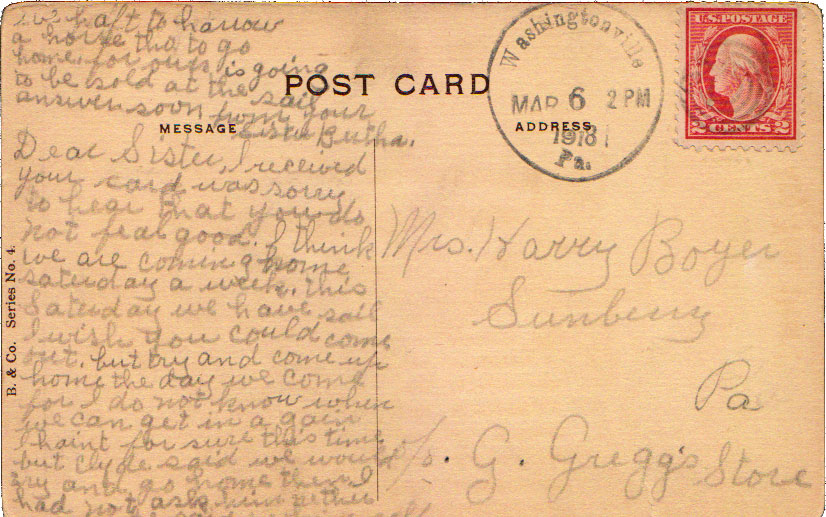 we haft to harrow
a horse tho to go
home. for ours is going
to be sold at the sail
answer soon from your
Sister Burtha.
POST CARD
MESSAGE
Dear Sister, I received
your card was sorry
to hear that you do
not feal good. I think
we are coming home
saterday a week. this
Saterday we have sail
I wish you could come
out. but try and come up
home the day we come
for I do not know when
we can get in a gain
I haint for sure this time
but Clyde said we would
try and go home then I
had not ask him nether
B. & Co. Series No. 4.
ADDRESS
Washingtonville
MAR 6 2 PM
1918
Pa.
U.S. POSTAGE
2 CENTS 2
Mrs. Harry Boyer
Sunberry
Pa
c/o. G. Gregg's Store